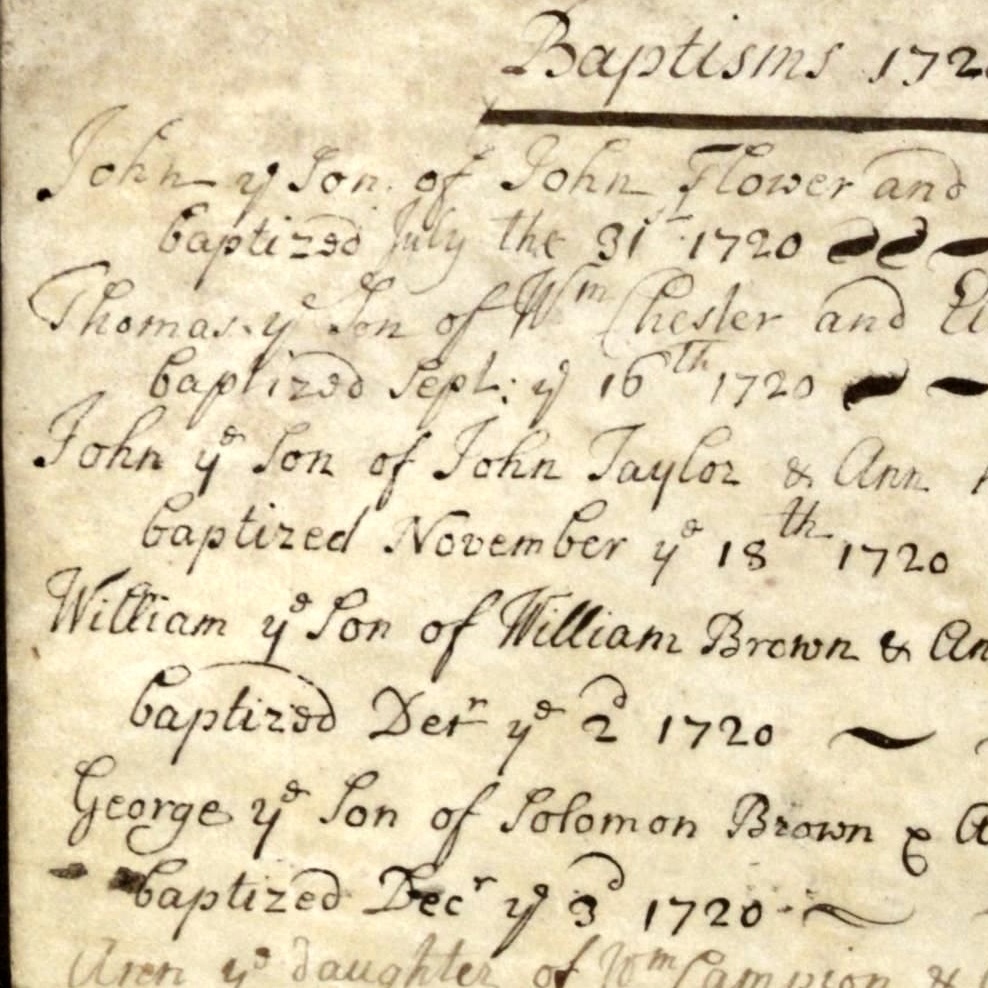 Baptisms 172
John ye Son of John Flower and
baptized July the 31st 1720
Thomas ye Son of Wm Chester and El
baptized Sept: ye 16th 1720
John ye Son of John Taylor & Ann
baptized November ye 18th 1720
William ye Son of William Brown & An
baptized Decr ye 2d 1720
George ye Son of Solomon Brown & A
baptized Decr ye 3d 1720
Ann ye daughter of Wm Campion &